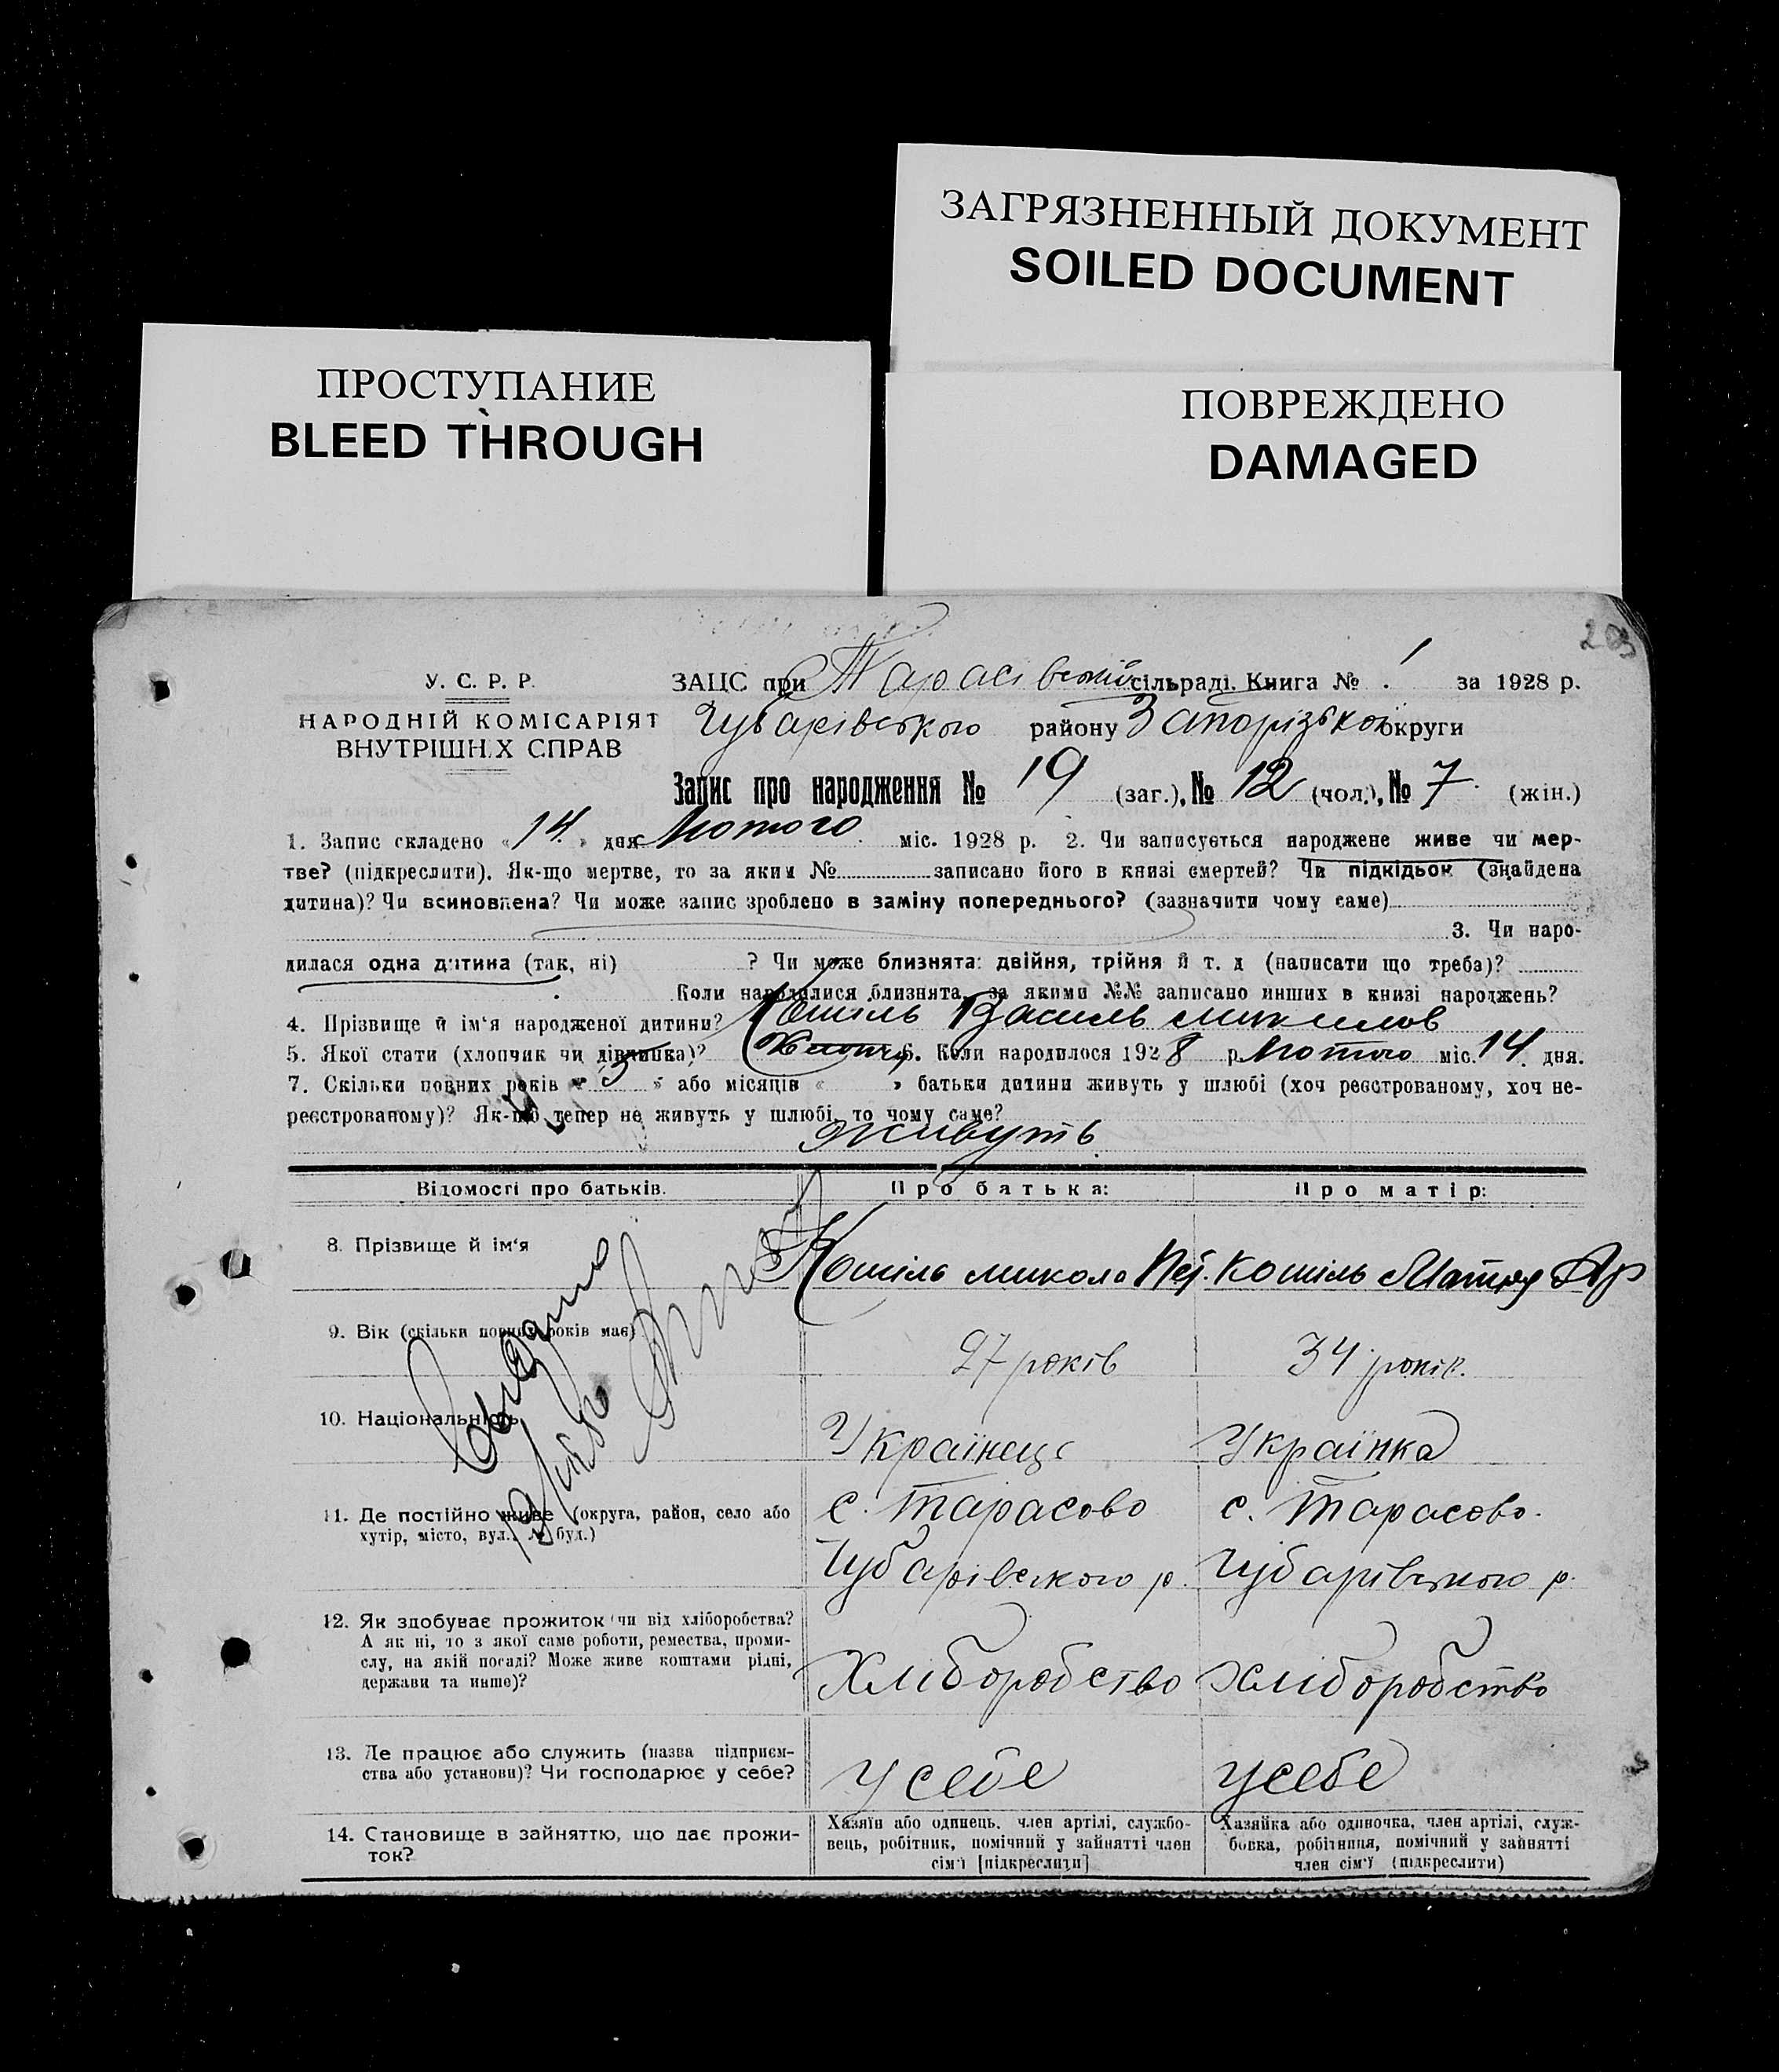 ЗАГРЯЗНЕННЫЙ ДОКУМЕНТ
SOILED DOCUMENT
ПРОСТУПАНИЕ
BLEED THROUGH
ПОВРЕЖДЕНО
DAMAGED
203
У. С. Р. Р.
НАРОДНІЙ КОМІСАРІЯТ
ВНУТРІШНІХ СПРАВ
ЗАЦС при Тарасівській сільраді. Книга № 1 за 1928 р.
Чубарівського району Запорізької округи
Запис про народження № 19 (заг.), № 12 (чол.), № 7 (жін.)
1. Запис складено «14» дня Лютого міс. 1928 р. 2. Чи записується народжене живе чи мер-
тве? (підкреслити). Як-що мертве, то за яким № записано його в книзі смертей? Чи підкідьок (знайдена
дитина)? Чи всиновлена? Чи може запис зроблено в заміну попереднього? (зазначити чому саме)
3. Чи наро-
дилася одна дитина (так, ні) ? Чи може близнята: двійня, трійня й т. д (написати що треба)?
Коли народилися близнята, за якими №№ записано инших в книзі народжень?
4. Прізвище й ім'я народженої дитини? Кошіль Василь миколов
5. Якої стати (хлопчик чи дівчинка)? Хлопчи 6. Коли народилося 1928 р. Лютого міс. 14 дня.
7. Скільки повних років «3» або місяців « » батьки дитини живуть у шлюбі (хоч реєстрованому, хоч не-
реєстрованому)? Як-що тепер не живуть у шлюбі, то чому саме?
живуть
Відомості про батьків. Про батька: Про матір:
8. Прізвище й ім'я Кошіль микола Пет. Кошіль Мотря
9. Вік (скільки повних років має) 27 років 34 років.
10. Національність Українець Українка
11. Де постійно живе (округа, район, село або
хутір, місто, вул., № буд.)
с. Тарасово с. Тарасово.
Чубарівського р. Чубарівського р.
12. Як здобуває прожиток (чи від хліборобства?
А як ні, то з якої саме роботи, ремества, проми-
слу, на якій посаді? Може живе коштами рідні,
держави та инше)?
Хліборобство хліборобство
13. Де працює або служить (назва підприєм-
ства або установи)? Чи господарює у себе?
У себе У себе
14. Становище в зайняттю, що дає прожи-
ток?
Хазяїн або одинець, член артілі, службо-
вець, робітник, помічний у зайнятті член
сім'ї [підкреслити]
Хазяйка або одиночка, член артілі, служ-
бовка, робітниця, помічний у зайнятті
член сім'ї (підкреслити)